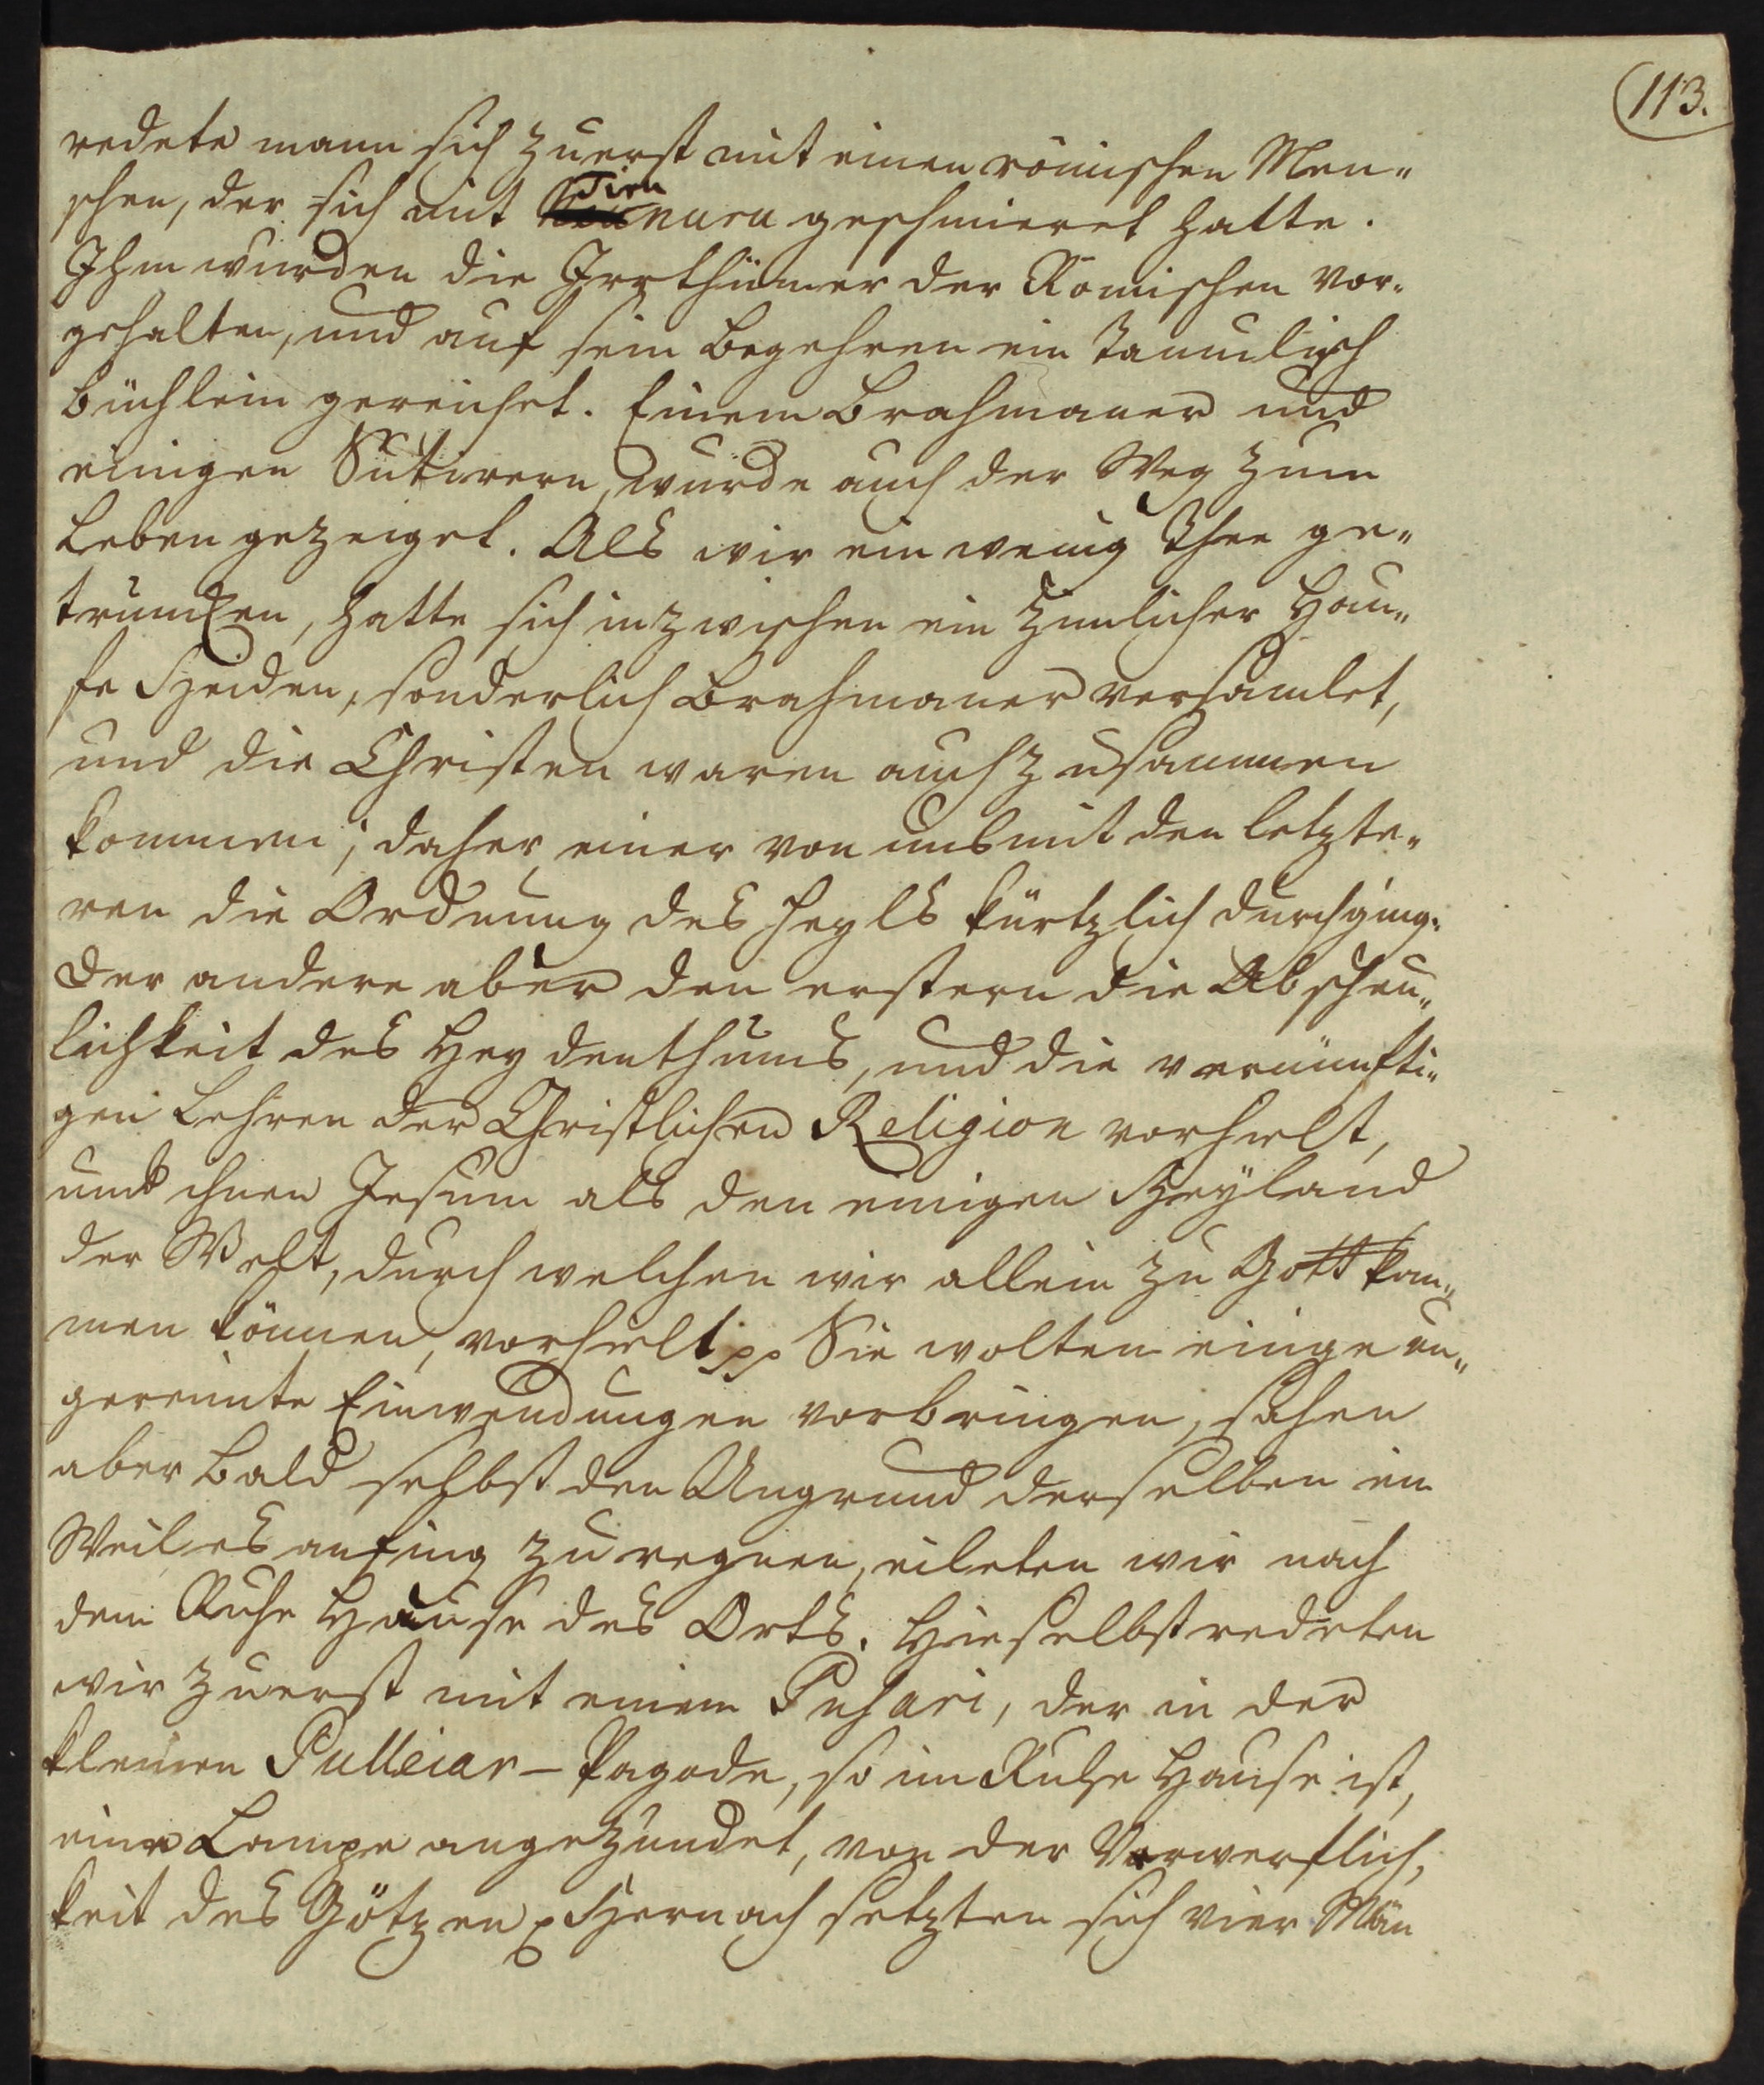 113.
redete mann sich zuerst mit einen römischen Men„
schen, der sich mit Tirunuru geschmieret hatte.
Ihm wurden die Irrthümer der Römischen vor„
gehalten, und auf sein Begehren ein Tamulisch
Büchlein gereichet. Einem Brahmaner und
einigen Sutirern, wurde auch der Weg zum
Leben gezeiget. Als wir ein wenig Thee ge„
truncken, hatte sich inzwischen ein zimlicher Hau„
fe Heiden, sonderlich Brahmaner versamlet,
und die Christen waren auch zusammen
kommen; daher einer von uns mit den letzte„
ren die Ordnung des Heyls kürtzlich durchging.
der andere aber den erstern die Abscheu„
lichkeit des Heydenthums, und die vernünfti„
gen Lehren der Christlichen Religion vorhielt,
und ihnen Jesum als den einigen Heyland
der Welt, durch welchen wir allein zu Gott kom„
men können, vorhielt pp Sie wolten einige un„
gereimte Einwendungen vorbringen, sahen
aber bald selbst den Ungrund derselben ein
Weil es anfing zu regnen, eileten wir nach
dem Ruhe Hause des Orts. Hieselbst redeten
wir zuerst mit einem Puhari, der in der
kleinen Pulleiar-Pagode, so im Ruhe Hause ist,
eine Lampe angezündet, von der Verwerflich„
keit des Götzen p Hernach setzten sich vier Män